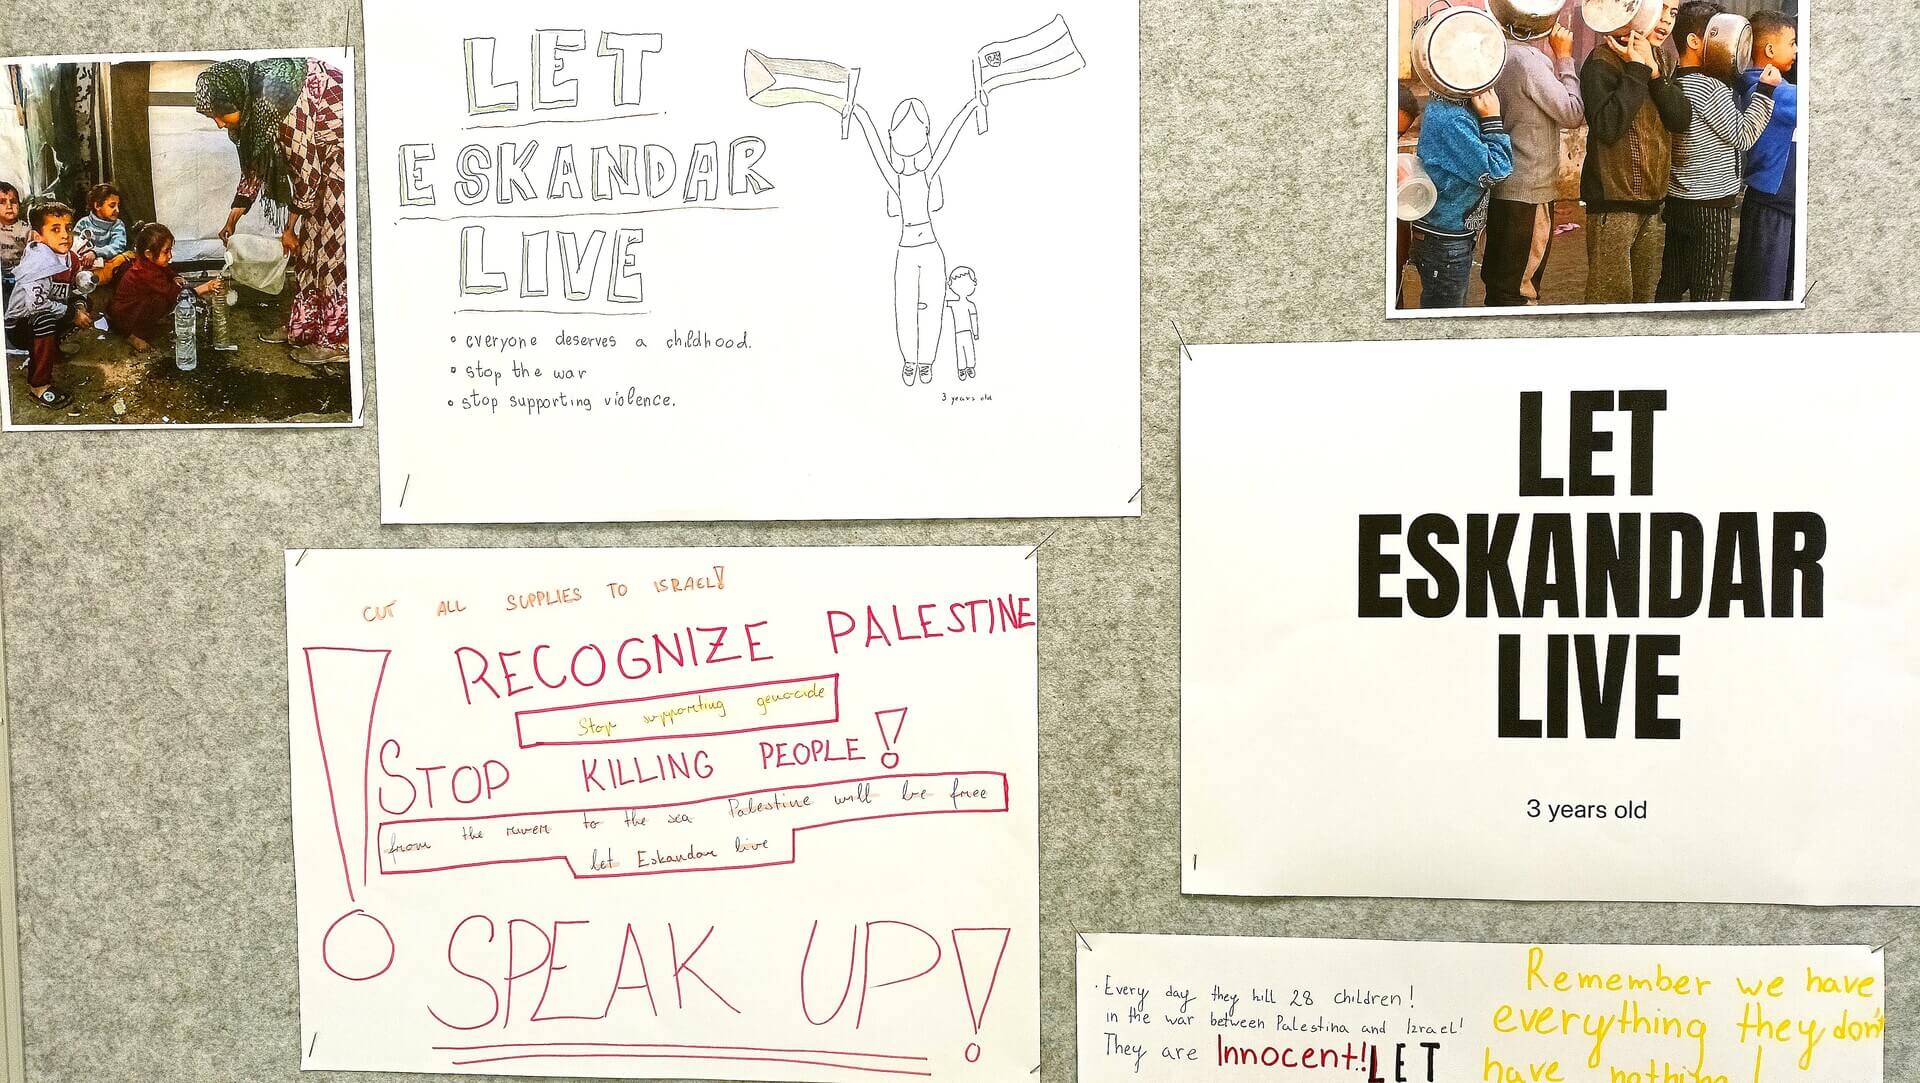 LET
ESKANDAR
LIVE
• everyone deserves a childhood.
• stop the war
• stop supporting violence.
3 years old
LET
ESKANDAR
LIVE
3 years old
CUT ALL SUPPLIES TO ISRAEL!
RECOGNIZE PALESTINE
Stop supporting genocide
STOP KILLING PEOPLE!
from the river to the sea Palestine will be free
let Eskandar live
SPEAK UP!
• Every day they kill 28 children!
in the war between Palestina and Izrael!
They are Innocent!!
LET
Remember we have
everything they don't
have nothing!